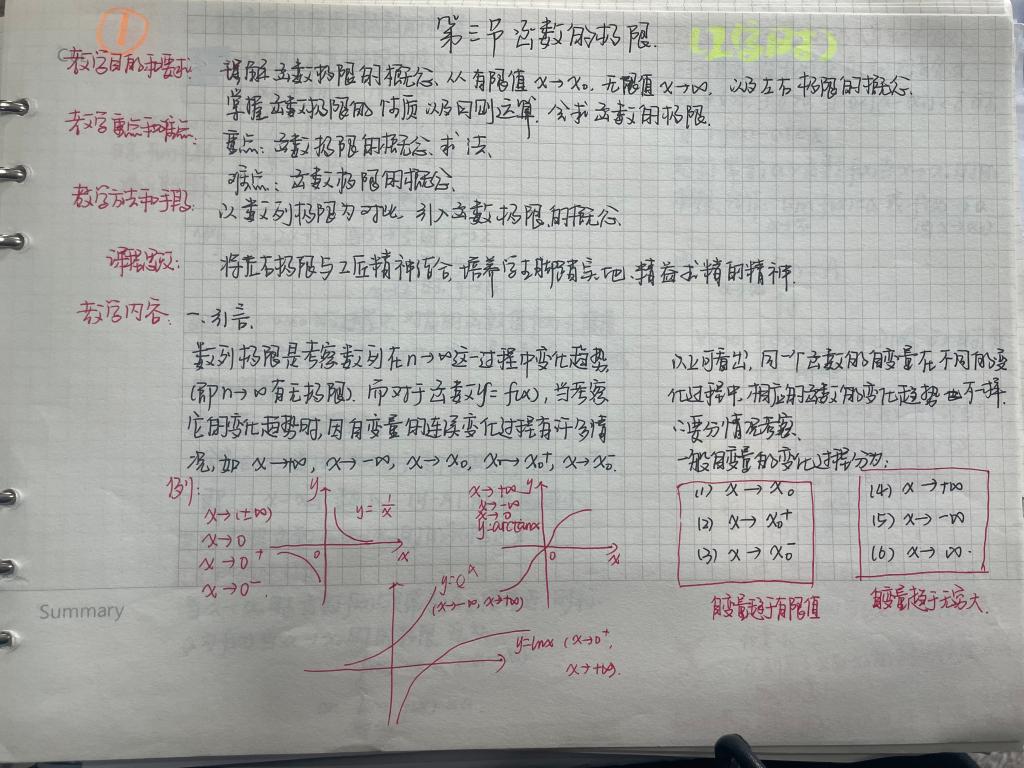 ①
第三节 函数的极限.
(2学时)
教学目的和要求: 理解函数极限的概念、从有限值 x→x₀, 无限值 x→∞, 以及左右极限的概念.
掌握函数极限的性质以及四则运算, 会求函数的极限.
教学重点和难点: 重点: 函数极限的概念、求法.
难点: 函数极限的概念.
教学方法和手段: 以数列极限为对比, 引入函数极限的概念.
课程思政: 将左右极限与工匠精神结合, 培养学生脚踏实地、精益求精的精神.
教学内容: 一.引言.
数列极限是考察数列在n→∞这一过程中变化趋势
(即n→∞有无极限). 而对于函数y=f(x), 当考察
它的变化趋势时, 因自变量的连续变化过程有许多情
况, 如 x→+∞, x→-∞, x→x₀, x→x₀⁺, x→x₀⁻.
例:
x→(±∞)
x→0
x→0⁺
x→0⁻
y
y=1/x
0
x
x→+∞
x→-∞
x→0
y=arctanx
y
0
x
y=a^x
(x→-∞, x→+∞)
y=lnx (x→0⁺,
x→+∞).
以上可看出, 同一个函数的自变量在不同的变
化过程中, 相应的函数的变化趋势也不一样.
∴要分情况考察.
一般自变量的变化过程分为:
(1) x→x₀
(2) x→x₀⁺
(3) x→x₀⁻
自变量趋于有限值
(4) x→+∞
(5) x→-∞
(6) x→∞.
自变量趋于无穷大.
Summary